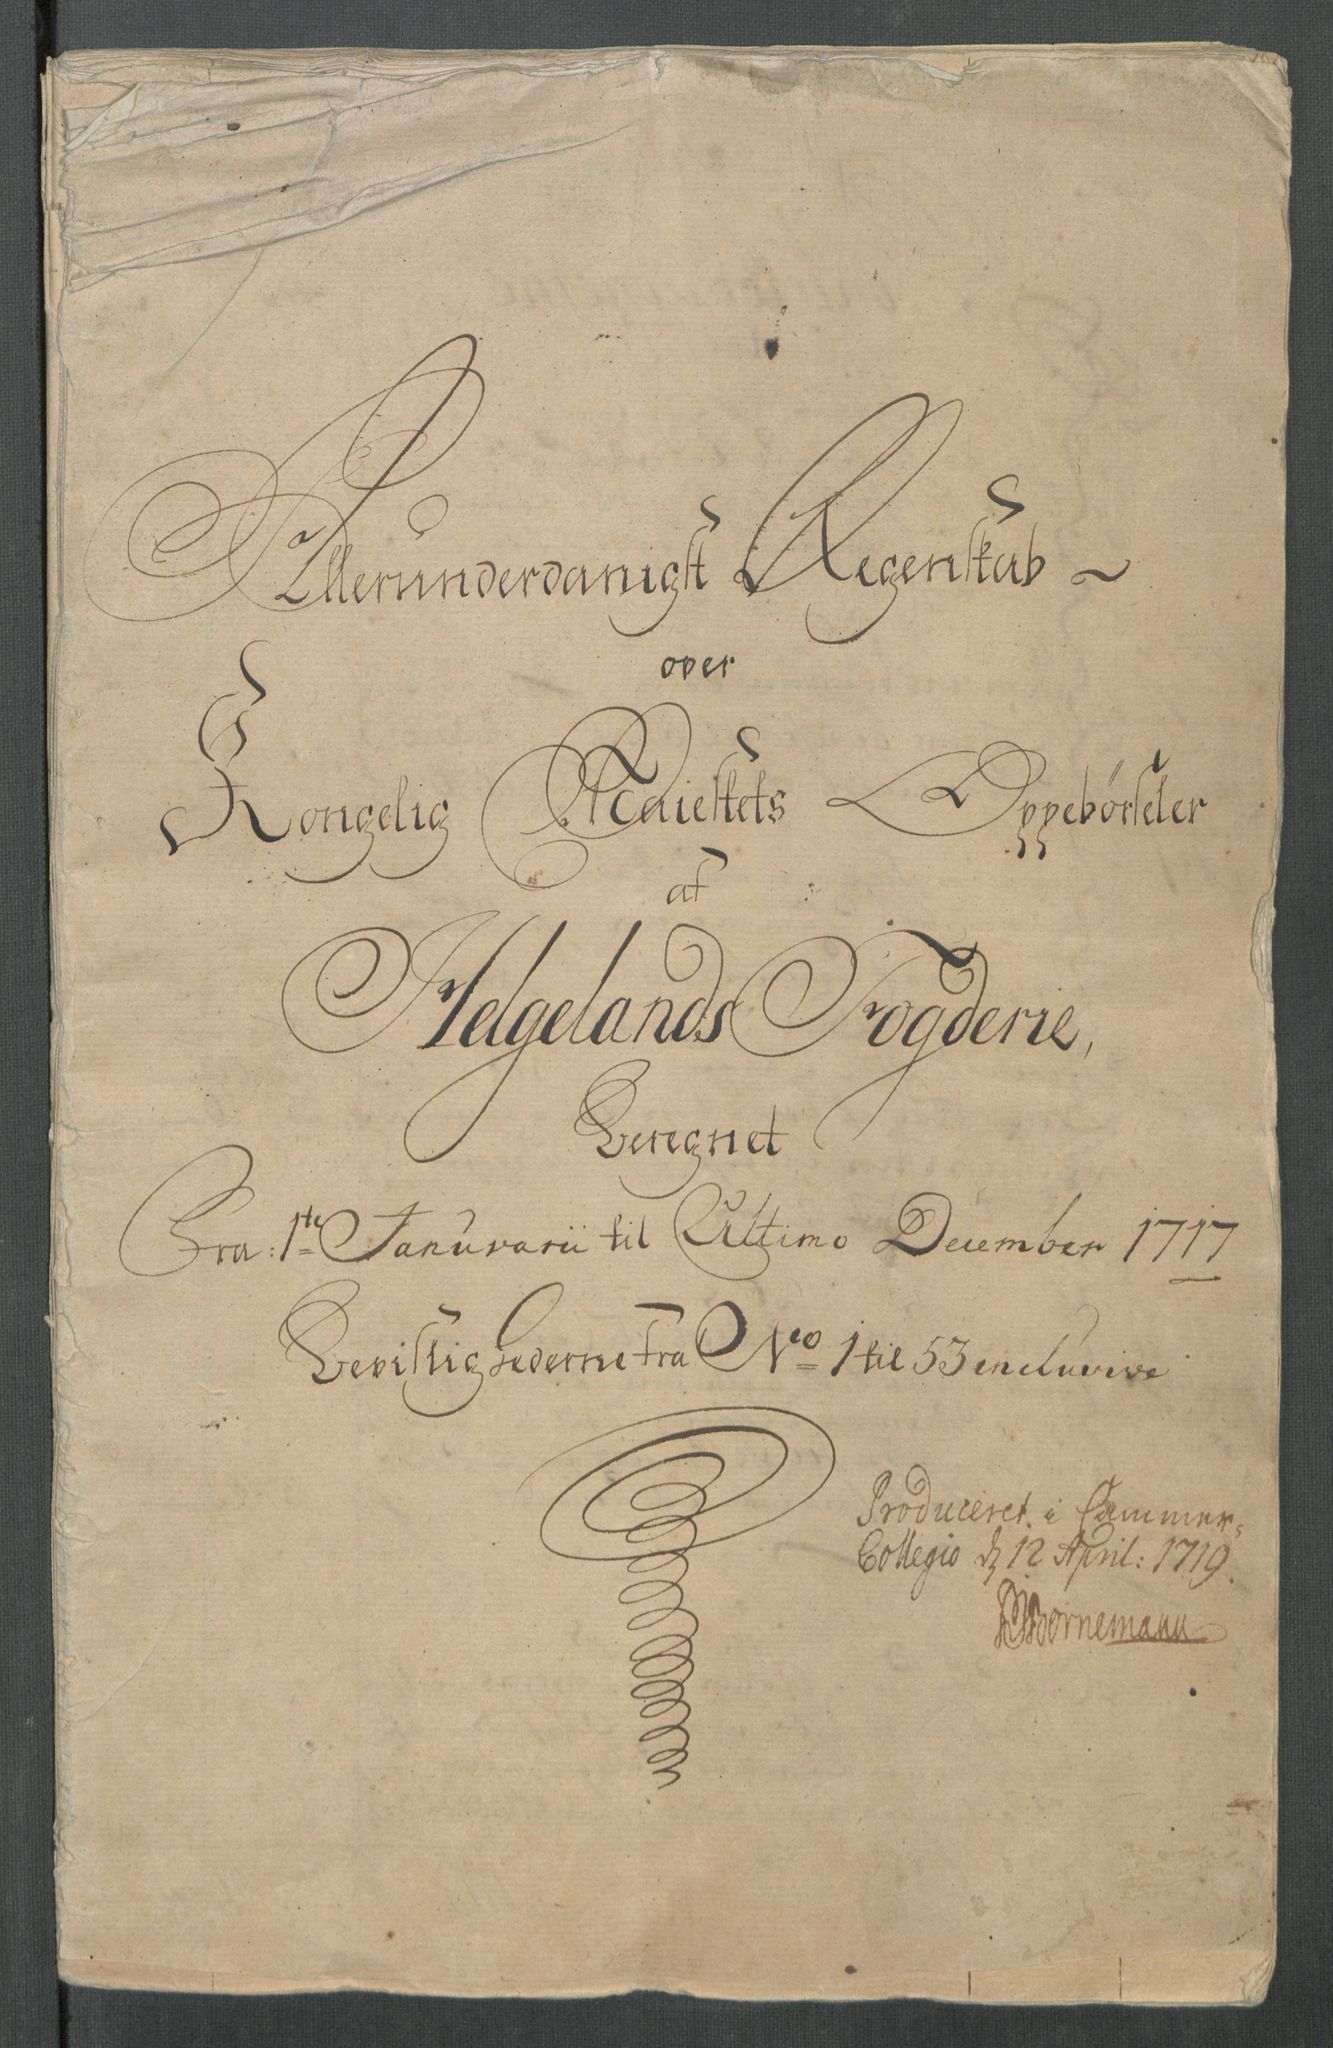 Allerunderdanigst Regenskab ~
over
Kongelig Maiestets Oppebörseler
af
Helgelands Fogderie,
Beregnet
Fra: 1te Januvarii til Ultimo December 1717
Bevislighederne fra No 1 til 53 incluvive
Produceret i Cammer-
Collegio d 12 April: 1719.
Bornemann